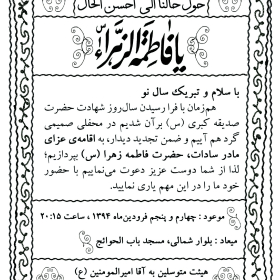 {حول حالنا الی احسن الحال}
یا فاطمة الزهراء
با سلام و تبریک سال نو
همزمان با فرا رسیدن سال‌روز شهادت حضرت
صدیقه کبری (س) برآن شدیم در محفلی صمیمی
گرد هم آییم و ضمن تجدید دیدار، به اقامه‌ی عزای
مادر سادات، حضرت فاطمه زهرا (س) بپردازیم؛
لذا از شما دوست عزیز دعوت می‌نماییم با حضور
خود ما را در این مهم یاری نمایید.
موعود : چهارم و پنجم فرودین‌ماه ۱۳۹۴ ، ساعت ۲۰:۱۵
میعاد : بلوار شمالی، مسجد باب الحوائج
هیئت متوسلین به آقا امیرالمومنین (ع)